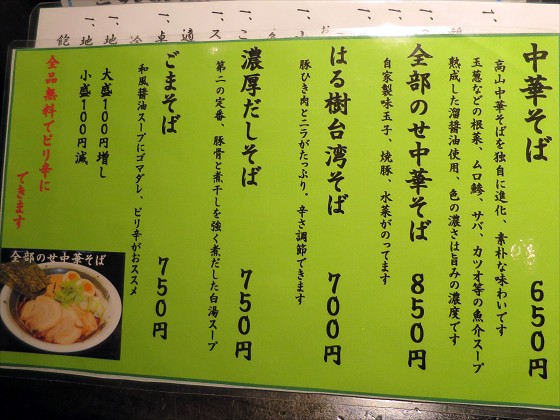 中華そば 650円
高山中華そばを独自に進化、素朴な味わいです
玉葱などの根菜、ムロ鯵、サバ、カツオ等の魚介スープ
熟成した溜醤油使用、色の濃さは旨みの濃度です
全部のせ中華そば 850円
自家製味玉子、焼豚、水菜がのってます
はる樹台湾そば 700円
豚ひき肉とニラがたっぷり。辛さ調節できます
濃厚だしそば 750円
第二の定番、豚骨と煮干しを強く煮だした白湯スープ
ごまそば 750円
和風醤油スープにゴマダレ、ピリ辛がおススメ
大盛100円増し
小盛100円減
全品無料でピリ辛に
できます
全部のせ中華そば